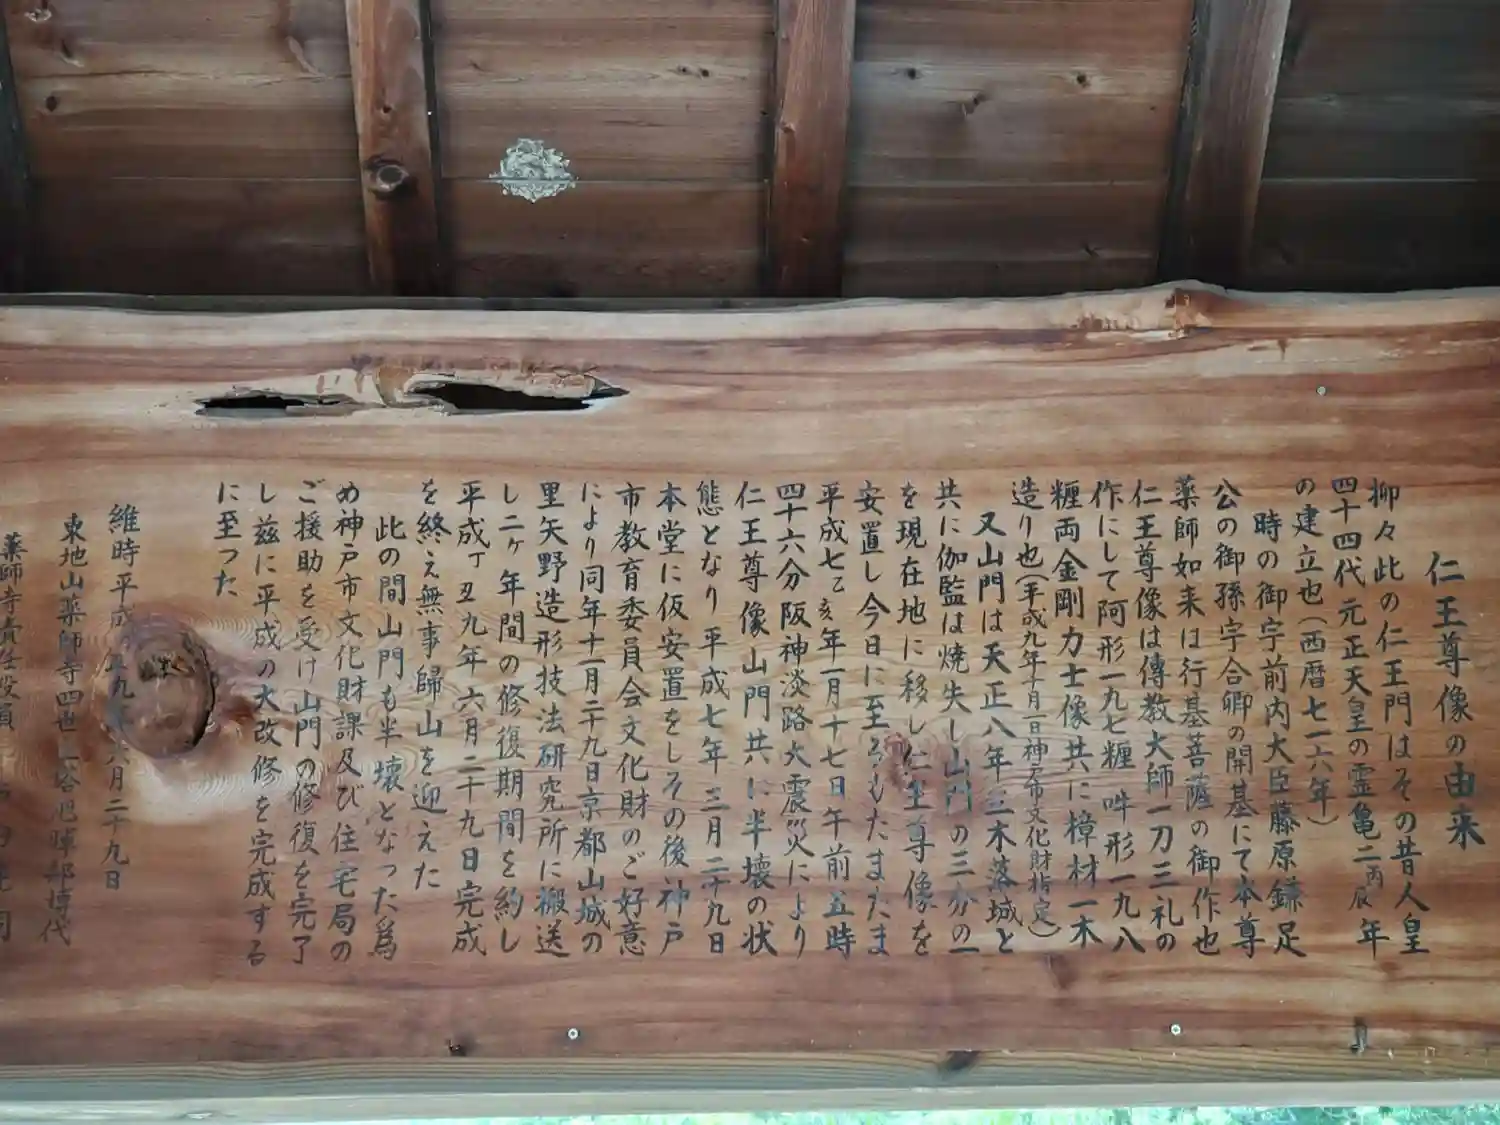 仁王尊像の由来
抑々此の仁王門はその昔人皇
四十四代元正天皇の霊亀二丙辰年
の建立也(西暦七一六年)
時の御宇前内大臣藤原鎌足
公の御孫宇合卿の開基にて本尊
薬師如来は行基菩薩の御作也
仁王尊像は傳教大師一刀三礼の
作にして阿形一九七糎吽形一九八
糎両金剛力士像共に樟材一木
造り也(平成九年十月一日神戸市文化財指定)
又山門は天正八年三木落城と
共に伽監は焼失し山門の三分の一
を現在地に移し仁王尊像を
安置し今日に至るもたまたま
平成七乙亥年一月十七日午前五時
四十六分阪神淡路大震災により
仁王尊像山門共に半壊の状
態となり平成七年三月二十九日
本堂に仮安置をしその後神戸
市教育委員会文化財のご好意
により同年十一月二十九日京都山城の
里矢野造形技法研究所に搬送
し二ヶ年間の修復期間を約し
平成丁丑九年六月二十九日完成
を終え無事歸山を迎えた
此の間山門も半壊となった為
め神戸市文化財課及び住宅局の
ご援助を受け山門の修復を完了
し茲に平成の大改修を完成する
に至った
維時平成 九年六月二十九日
東地山薬師寺四世
薬師寺責任役員